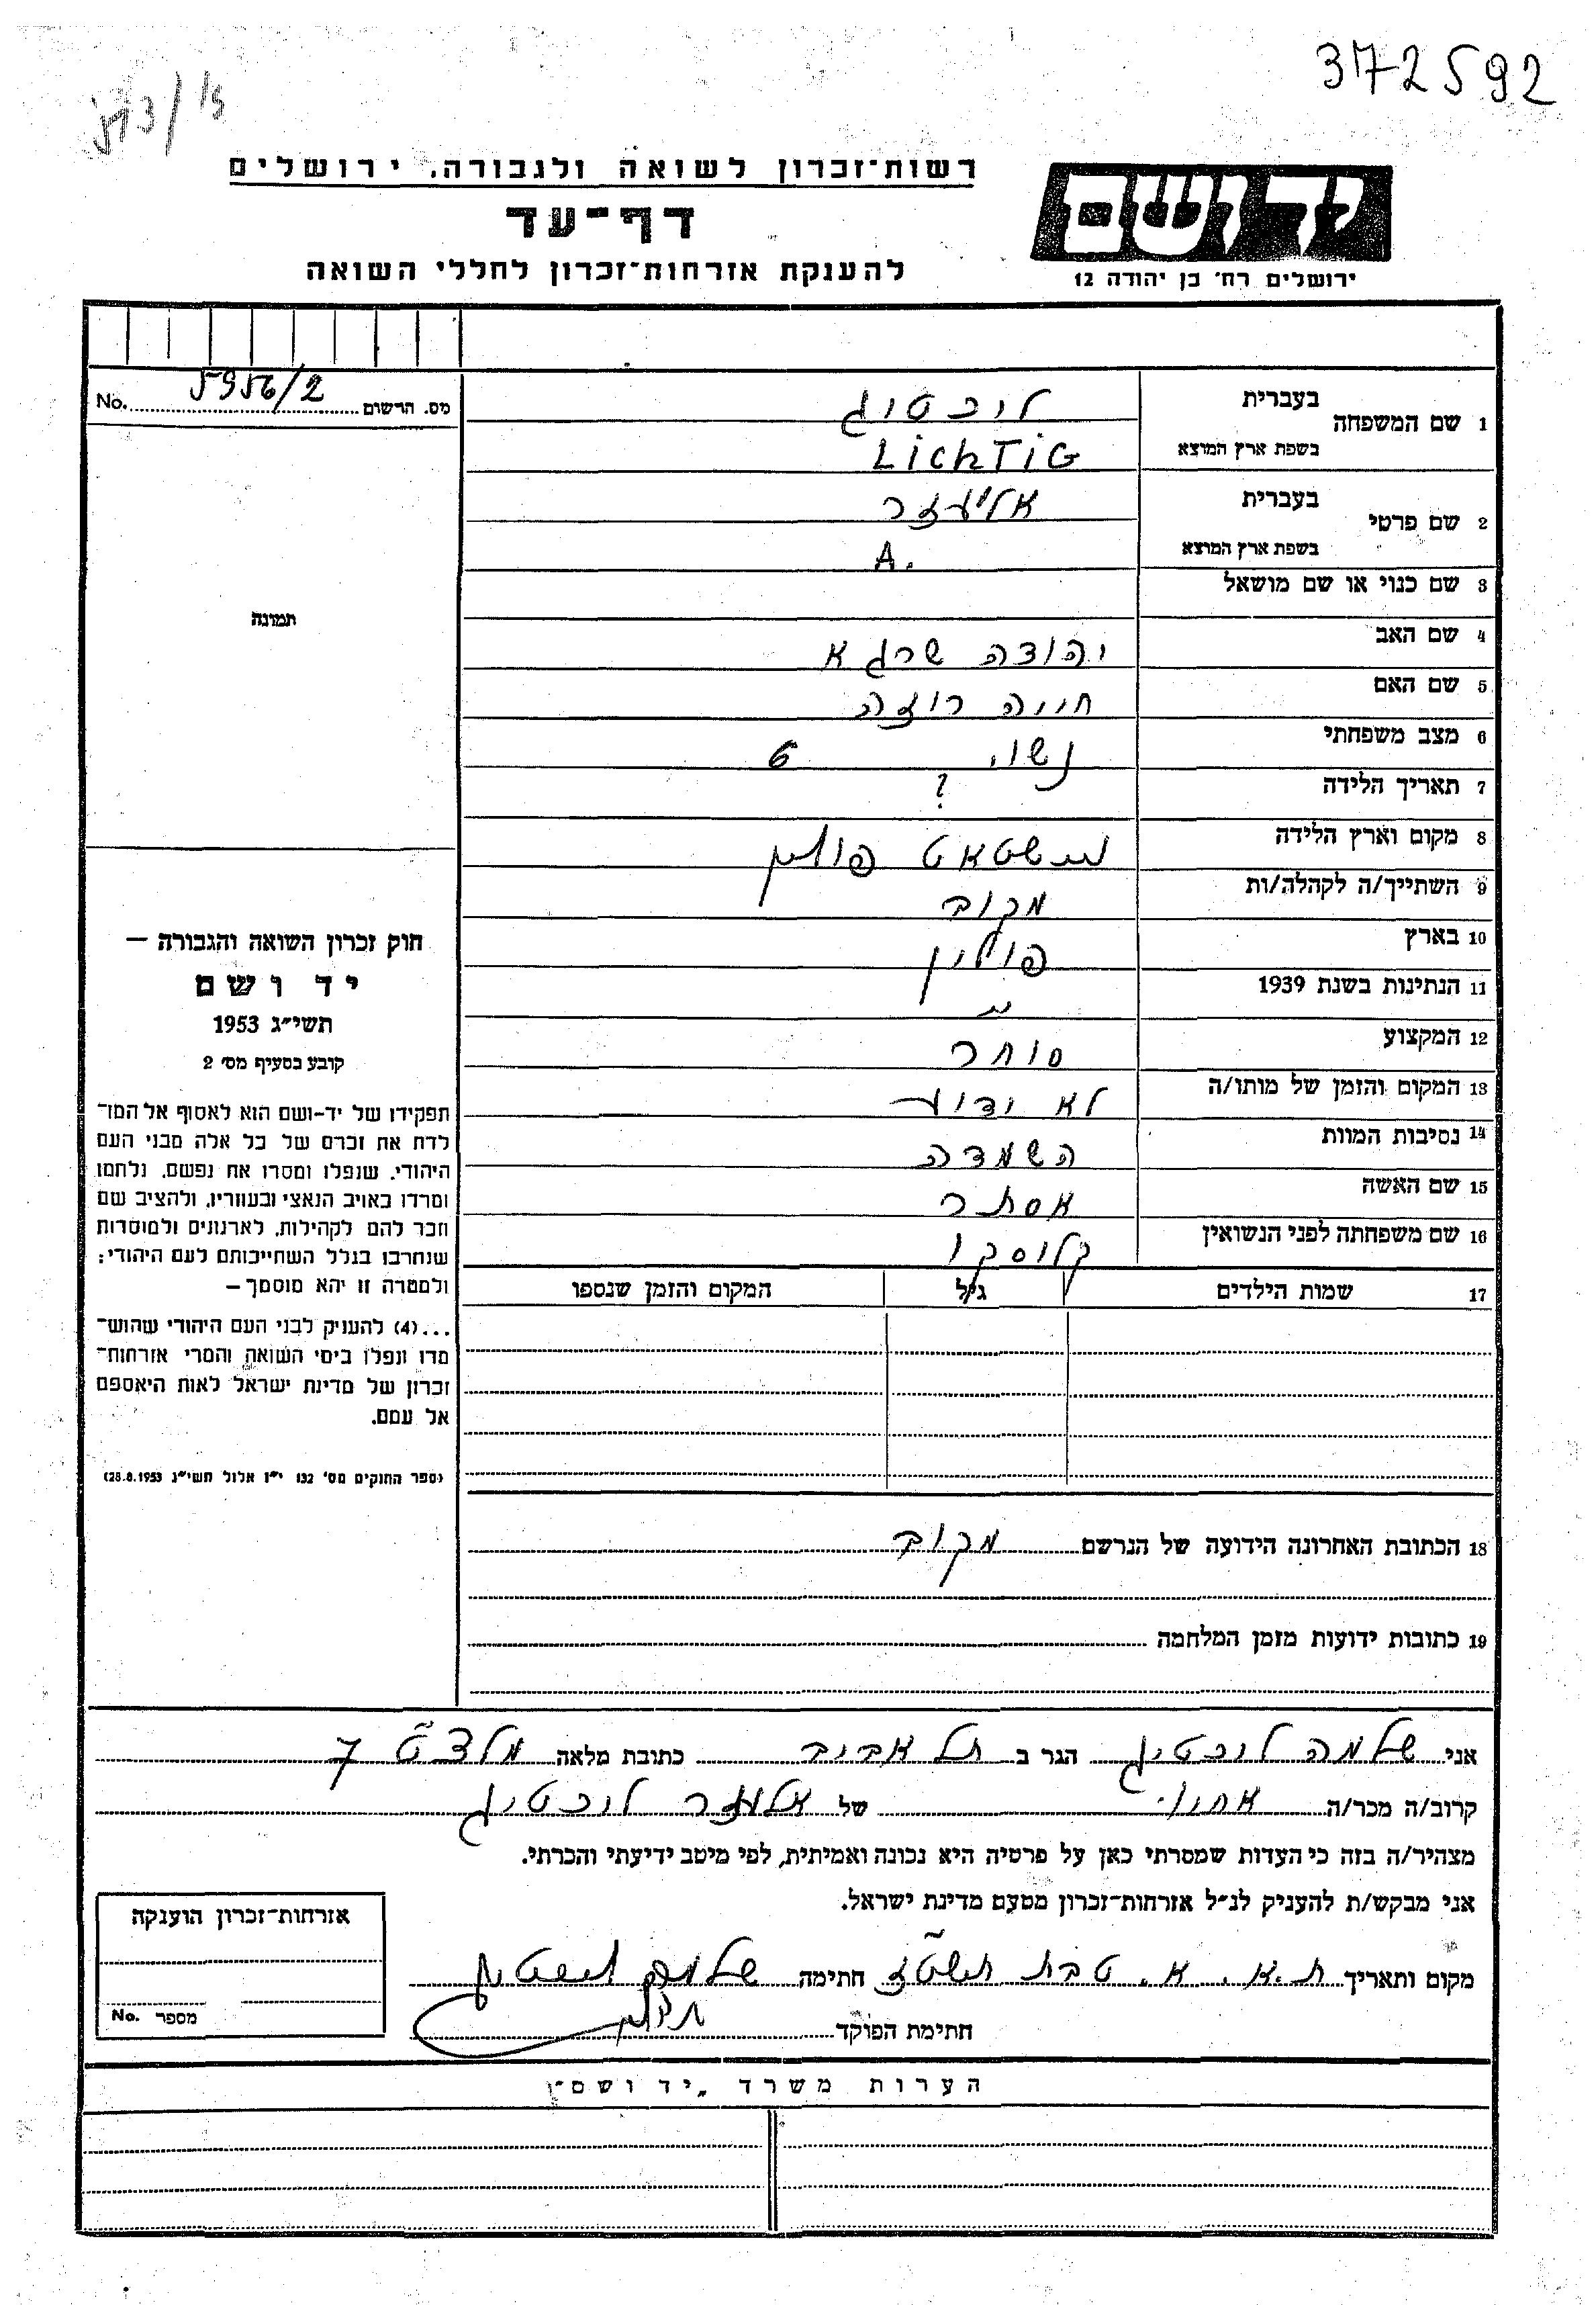 372592
רשות־זכרון לשואה ולגבורה, ירושלים
דף־עד
להענקת אזרחות־זכרון לחללי השואה
יד ושם
ירושלים רח' בן יהודה 12
No. 5956/2 מס. הרשום
1 שם המשפחה בעברית ליכטיג
בשפת ארץ המוצא LichTiG
2 שם פרטי בעברית אליעזר
בשפת ארץ המוצא A.
3 שם כנוי או שם מושאל
4 שם האב יהודה שרגא
5 שם האם חייה רוזה
6 מצב משפחתי נשוי 6
7 תאריך הלידה ?
8 מקום וארץ הלידה פולין
9 השתייך/ה לקהלה/ות מקוב
10 בארץ פולין
11 הנתינות בשנת 1939 "
12 המקצוע סוחר
13 המקום והזמן של מותו/ה לא ידוע
14 נסיבות המוות השמדה
15 שם האשה אסתר
16 שם משפחתה לפני הנשואין קלוסקי
תמונה
חוק זכרון השואה והגבורה –
יד ושם
תשי״ג 1953
קובע בסעיף מס׳ 2
תפקידו של יד-ושם הוא לאסוף אל המו־
לדת את זכרם של כל אלה מבני העם
היהודי, שנפלו ומסרו את נפשם, נלחמו
ומרדו באויב הנאצי ובעוזריו, ולהציב שם
וזכר להם לקהילות, לארגונים ולמוסדות
שנחרבו בגלל השתייכותם לעם היהודי:
ולמטרה זו יהא מוסמך –
...(4) להעניק לבני העם היהודי שהוש־
מדו ונפלו בימי השואה והמרי אזרחות־
זכרון של מדינת ישראל לאות היאספם
אל עמם.
(ספר החוקים מס׳ 132 י״ז אלול תשי״ג 28.8.1953)
17 שמות הילדים גיל המקום והזמן שנספו
18 הכתובת האחרונה הידועה של הנרשם מקוב
19 כתובות ידועות מזמן המלחמה
אני שלמה ליכטיג הגר ב תל אביב כתובת מלאה 7
קרוב/ה מכר/ה אחיו של אליעזר ליכטיג
מצהיר/ה בזה כי העדות שמסרתי כאן על פרטיה היא נכונה ואמיתית, לפי מיטב ידיעתי והכרתי.
אני מבקש/ת להעניק לנ״ל אזרחות־זכרון מטעם מדינת ישראל.
מקום ותאריך ת.א. א. טבת תשט"ז חתימה שלמה ליכטיג
חתימת הפוקד
אזרחות־זכרון הוענקה
מספר No.
הערות משרד „יד ושם״